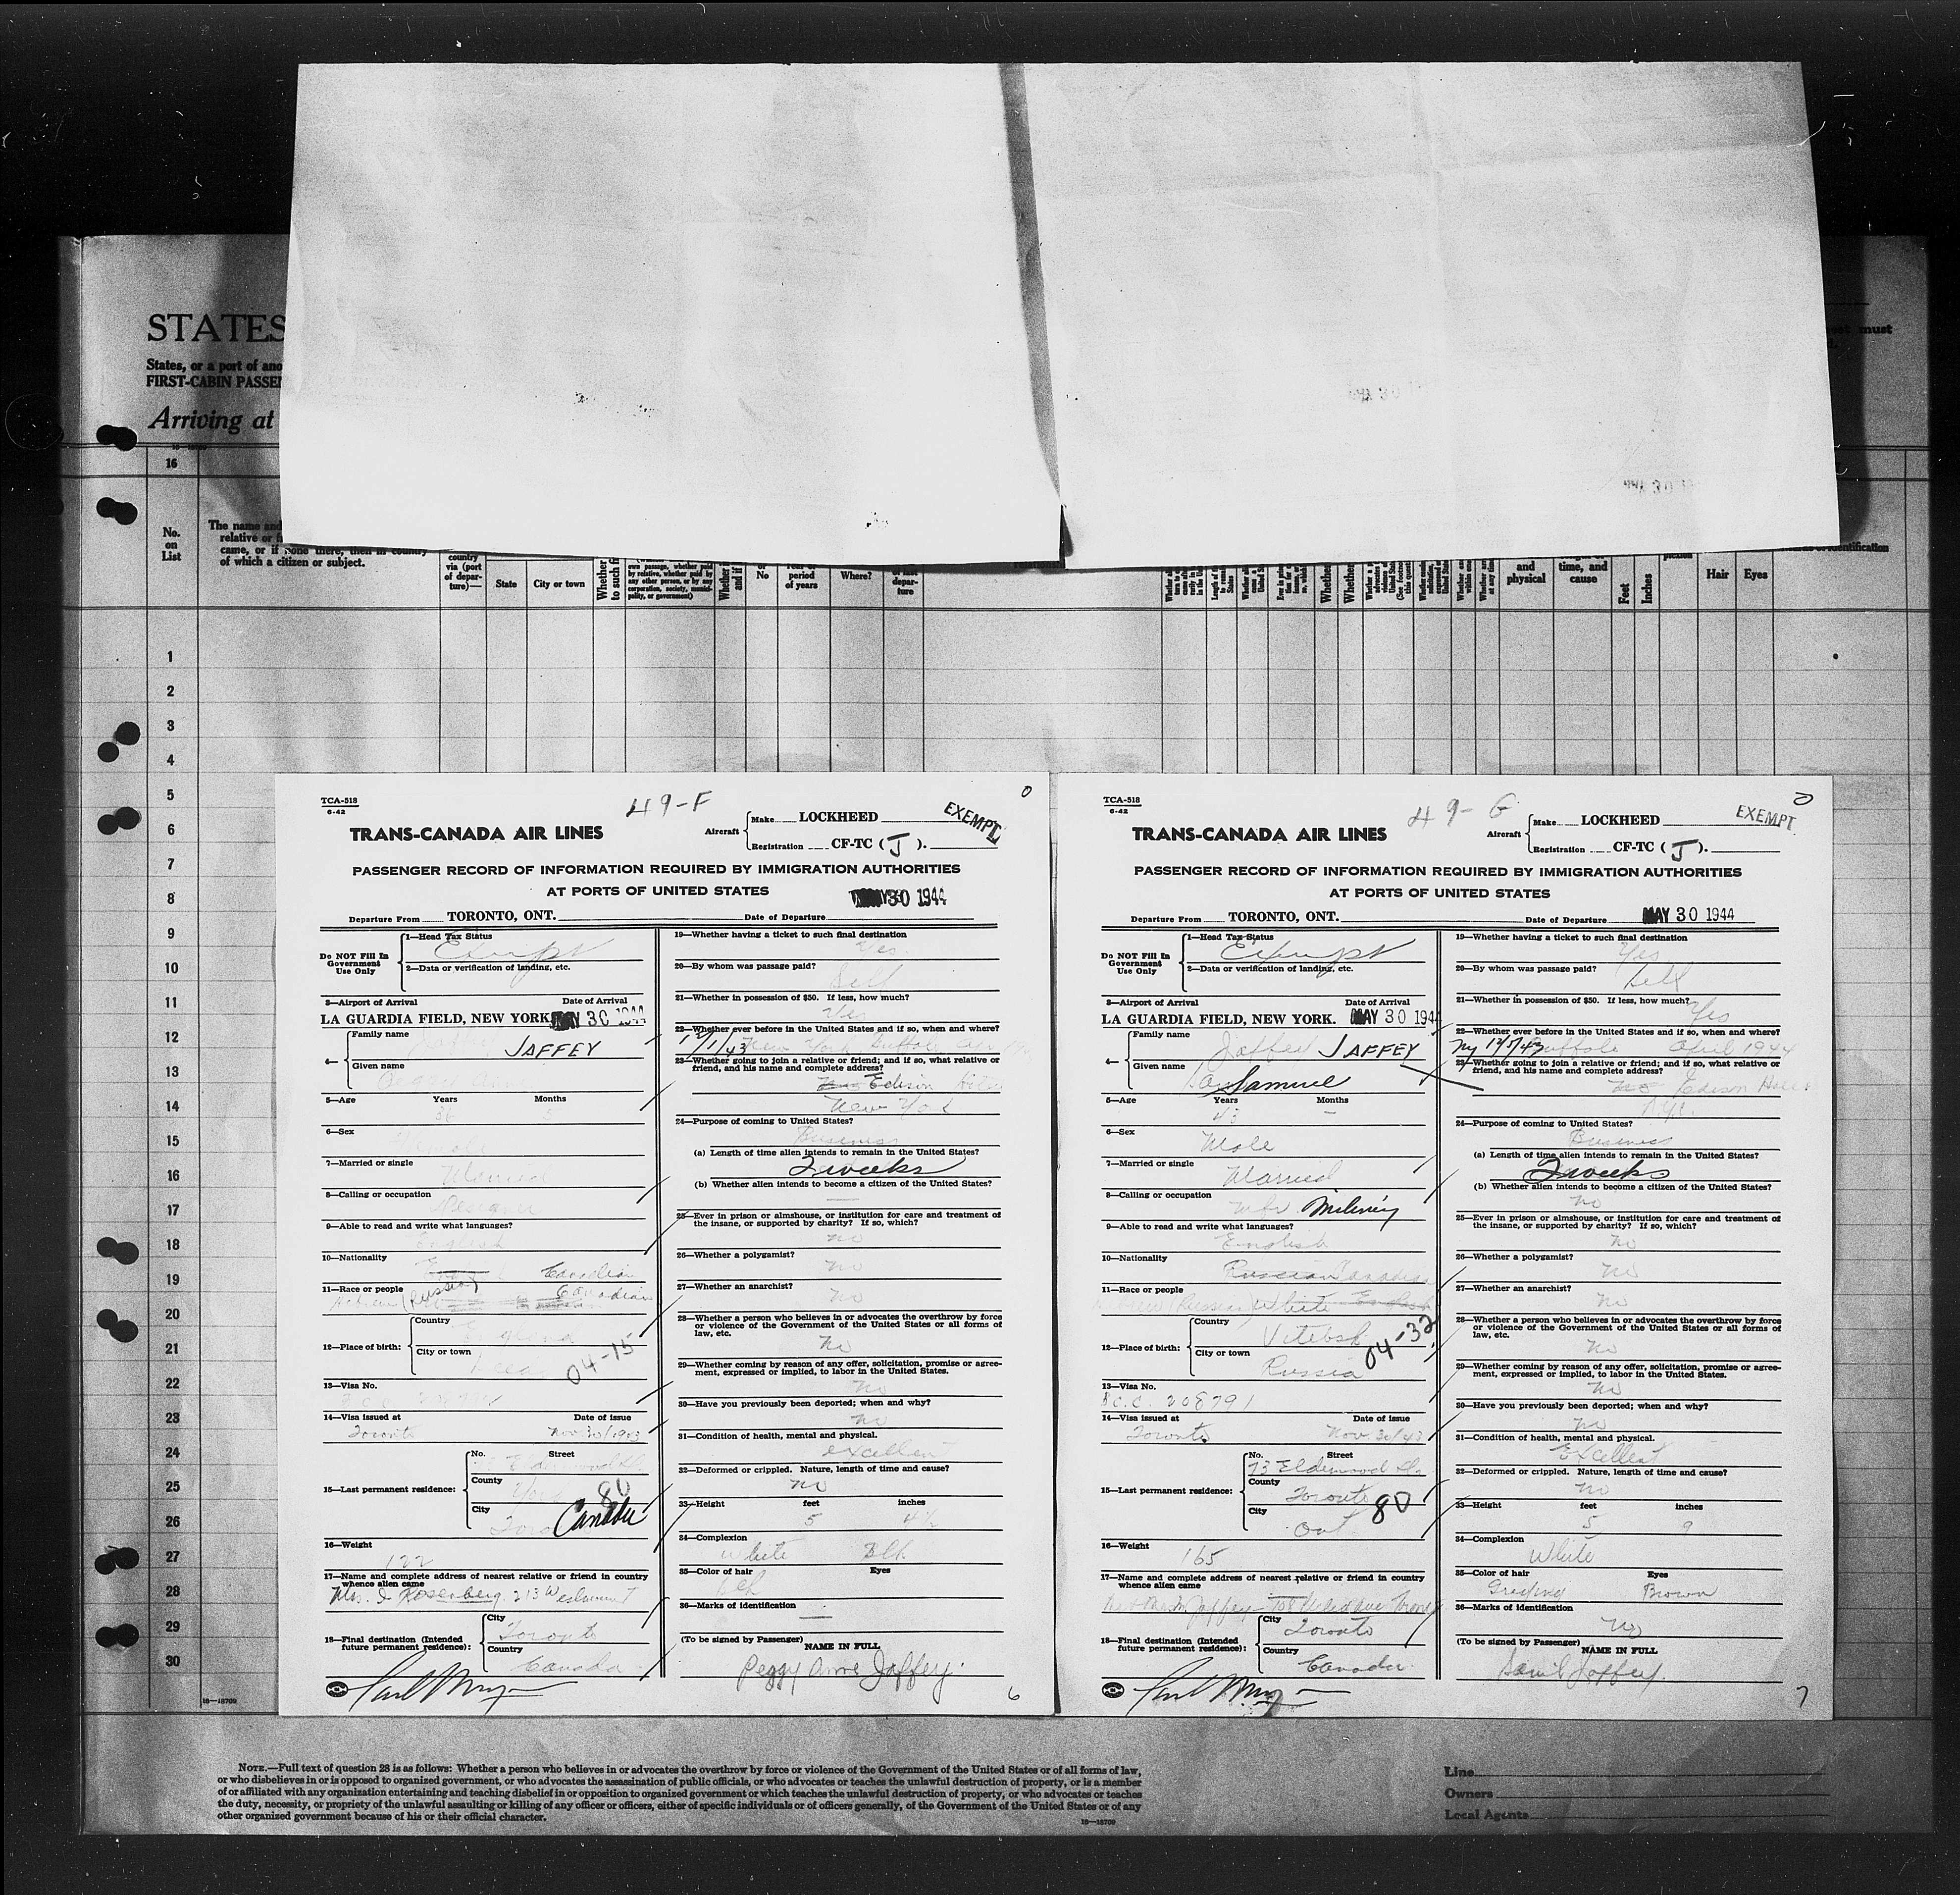 STATES
States, or a port of ano
FIRST-CABIN PASSE
Arriving at
must
16
No. on List
The name and
relative or f
came, or if none there, then in country
of which a citizen or subject.
country via (port of depar- ture)—
State
City or town
Whether
to such fi
own passage, whether paid by relative, whether paid by any other person, or by any corporation, society, munici- pality, or government)
Whether
and if
No
period of years
Where?
depar- ture
Whether
Whether
and physical
time, and cause
Feet
Inches
Hair
Eyes
identification
1
2
3
4
5
6
7
8
9
10
11
12
13
14
15
16
17
18
19
20
21
22
23
24
25
26
27
28
29
30
16—18709
TCA-518
6-42
49-F
TRANS-CANADA AIR LINES
Aircraft
Make LOCKHEED
Registration CF-TC ( J ).
EXEMPT
PASSENGER RECORD OF INFORMATION REQUIRED BY IMMIGRATION AUTHORITIES
AT PORTS OF UNITED STATES
MAY 30 1944
Departure From TORONTO, ONT. Date of Departure
Do NOT Fill In Government Use Only
1—Head Tax Status
Exempt
2—Data or verification of landing, etc.
3—Airport of Arrival Date of Arrival
LA GUARDIA FIELD, NEW YORK. MAY 30 1944
4—
Family name
JAFFEY
Given name
5—Age Years Months
36
6—Sex
7—Married or single
Married
8—Calling or occupation
Designer
9—Able to read and write what languages?
English
10—Nationality
Canadian
11—Race or people
(Russian) Canadian
12—Place of birth:
Country
England
City or town
Leeds
04-15
13—Visa No.
14—Visa issued at Date of issue
Toronto Nov 30/1943
15—Last permanent residence:
No. Street
County
York 80
City
Canada
16—Weight
122
17—Name and complete address of nearest relative or friend in country
whence alien came
Mrs. I Rosenberg. 213 Westmount
18—Final destination (Intended future permanent residence):
City
Toronto
Country
Canada
19—Whether having a ticket to such final destination
Yes
20—By whom was passage paid?
Self
21—Whether in possession of $50. If less, how much?
Yes
22—Whether ever before in the United States and if so, when and where?
12/1/43 New York Buffalo
23—Whether going to join a relative or friend; and if so, what relative or
friend, and his name and complete address?
Edison Hotel
New York
24—Purpose of coming to United States?
Business
(a) Length of time alien intends to remain in the United States?
2 weeks
(b) Whether alien intends to become a citizen of the United States?
—
25—Ever in prison or almshouse, or institution for care and treatment of
the insane, or supported by charity? If so, which?
no
26—Whether a polygamist?
no
27—Whether an anarchist?
no
28—Whether a person who believes in or advocates the overthrow by force
or violence of the Government of the United States or all forms of
law, etc.
No
29—Whether coming by reason of any offer, solicitation, promise or agree-
ment, expressed or implied, to labor in the United States.
no
30—Have you previously been deported; when and why?
no
31—Condition of health, mental and physical.
excellent
32—Deformed or crippled. Nature, length of time and cause?
no
33—Height feet inches
5 4½
34—Complexion
White Blk
35—Color of hair Eyes
Blk
36—Marks of identification
—
(To be signed by Passenger)
NAME IN FULL
Peggy Anne Jaffey.
6
TCA-518
6-42
49-G
TRANS-CANADA AIR LINES
Aircraft
Make LOCKHEED
Registration CF-TC ( J ).
EXEMPT
PASSENGER RECORD OF INFORMATION REQUIRED BY IMMIGRATION AUTHORITIES
AT PORTS OF UNITED STATES
Departure From TORONTO, ONT. Date of Departure MAY 30 1944
Do NOT Fill In Government Use Only
1—Head Tax Status
Exempt
2—Data or verification of landing, etc.
3—Airport of Arrival Date of Arrival
LA GUARDIA FIELD, NEW YORK. MAY 30 1944
4—
Family name
Jaffey JAFFEY
Given name
Samuel
5—Age Years Months
43 —
6—Sex
Male
7—Married or single
Married
8—Calling or occupation
Mfr. Milinery
9—Able to read and write what languages?
English
10—Nationality
Russian Canadian
11—Race or people
(Russian) White English
12—Place of birth:
Country
Vitebsk
City or town
Russia
04-32
13—Visa No.
B.C.C. 208791
14—Visa issued at Date of issue
Toronto. Nov 30/43
15—Last permanent residence:
No. Street
73 Elderwood Dr.
County
Toronto
City
Ont 80
16—Weight
165
17—Name and complete address of nearest relative or friend in country
whence alien came
18—Final destination (Intended future permanent residence):
City
Toronto
Country
Canada.
19—Whether having a ticket to such final destination
Yes
20—By whom was passage paid?
Self
21—Whether in possession of $50. If less, how much?
Yes
22—Whether ever before in the United States and if so, when and where?
Ny 12/5/43 Buffalo April 1944
23—Whether going to join a relative or friend; and if so, what relative or
friend, and his name and complete address?
No Edison Hotel
N.Y.C.
24—Purpose of coming to United States?
Business
(a) Length of time alien intends to remain in the United States?
2 weeks
(b) Whether alien intends to become a citizen of the United States?
No
25—Ever in prison or almshouse, or institution for care and treatment of
the insane, or supported by charity? If so, which?
No
26—Whether a polygamist?
No
27—Whether an anarchist?
No
28—Whether a person who believes in or advocates the overthrow by force
or violence of the Government of the United States or all forms of
law, etc.
No
29—Whether coming by reason of any offer, solicitation, promise or agree-
ment, expressed or implied, to labor in the United States.
No
30—Have you previously been deported; when and why?
No
31—Condition of health, mental and physical.
Excellent
32—Deformed or crippled. Nature, length of time and cause?
No
33—Height feet inches
5 9
34—Complexion
White
35—Color of hair Eyes
Greying Brown
36—Marks of identification
No
(To be signed by Passenger)
NAME IN FULL
Saml Jaffey.
7
NOTE.—Full text of question 28 is as follows: Whether a person who believes in or advocates the overthrow by force or violence of the Government of the United States or of all forms of law,
or who disbelieves in or is opposed to organized government, or who advocates the assassination of public officials, or who advocates or teaches the unlawful destruction of property, or is a member
of or affiliated with any organization entertaining and teaching disbelief in or opposition to organized government or which teaches the unlawful destruction of property, or who advocates or teaches
the duty, necessity, or propriety of the unlawful assaulting or killing of any officer or officers, either of specific individuals or of officers generally, of the Government of the United States or of any
other organized government because of his or their official character.
16—18709
Line
Owners
Local Agents